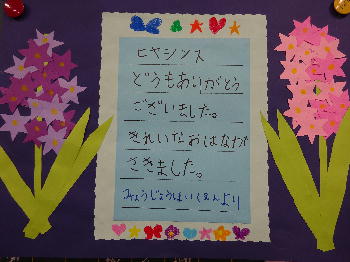 ヒヤシンス
どうもありがとう
ございました。
きれいなおはなが
さきました。
みょうじょうほいくえんより